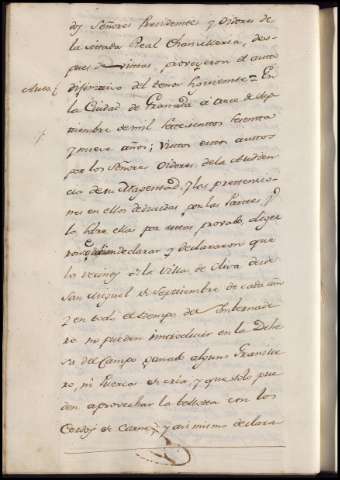 dos Señores Presidentes y Oidores de
la citada Real Chancilleria, des-
pues vistas, proveyeron el auto
Auto difinitivo del tenor siguiente = En
la Ciudad de Granada a once de sep-
tiembre de mil setecientos setenta
y nueve años; vistos estos autos
por los Señores Oidores de la Audien-
cia de su Magestad, y las pretensio-
nes en ellos deducidas por las Partes y
lo sobre ellas por estas provado, dixer
ron que devian declarar y declararon que
los vecinos de la Villa de Oliva desde
San Miguel de Septiembre de cada año
y en todo el tiempo de Inbernade
ro no pueden introducir en la Dehe
sa del Campo ganado alguno Transtu
ro, ni Puercos de cria, y que solo pue
den aprovechar la bellota con los
Cerdos de Carne, y asi mismo declara